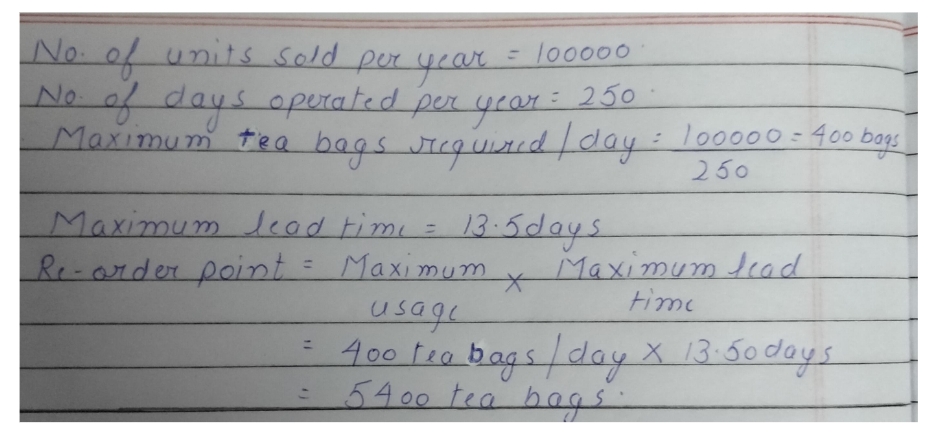 No. of units sold per year = 100000.
No. of days operated per year = 250.
Maximum tea bags required / day = 100000 = 400 bags
250
Maximum lead time = 13.5 days
Re-order point = Maximum usage × Maximum lead time
= 400 tea bags / day × 13.50 days
= 5400 tea bags.